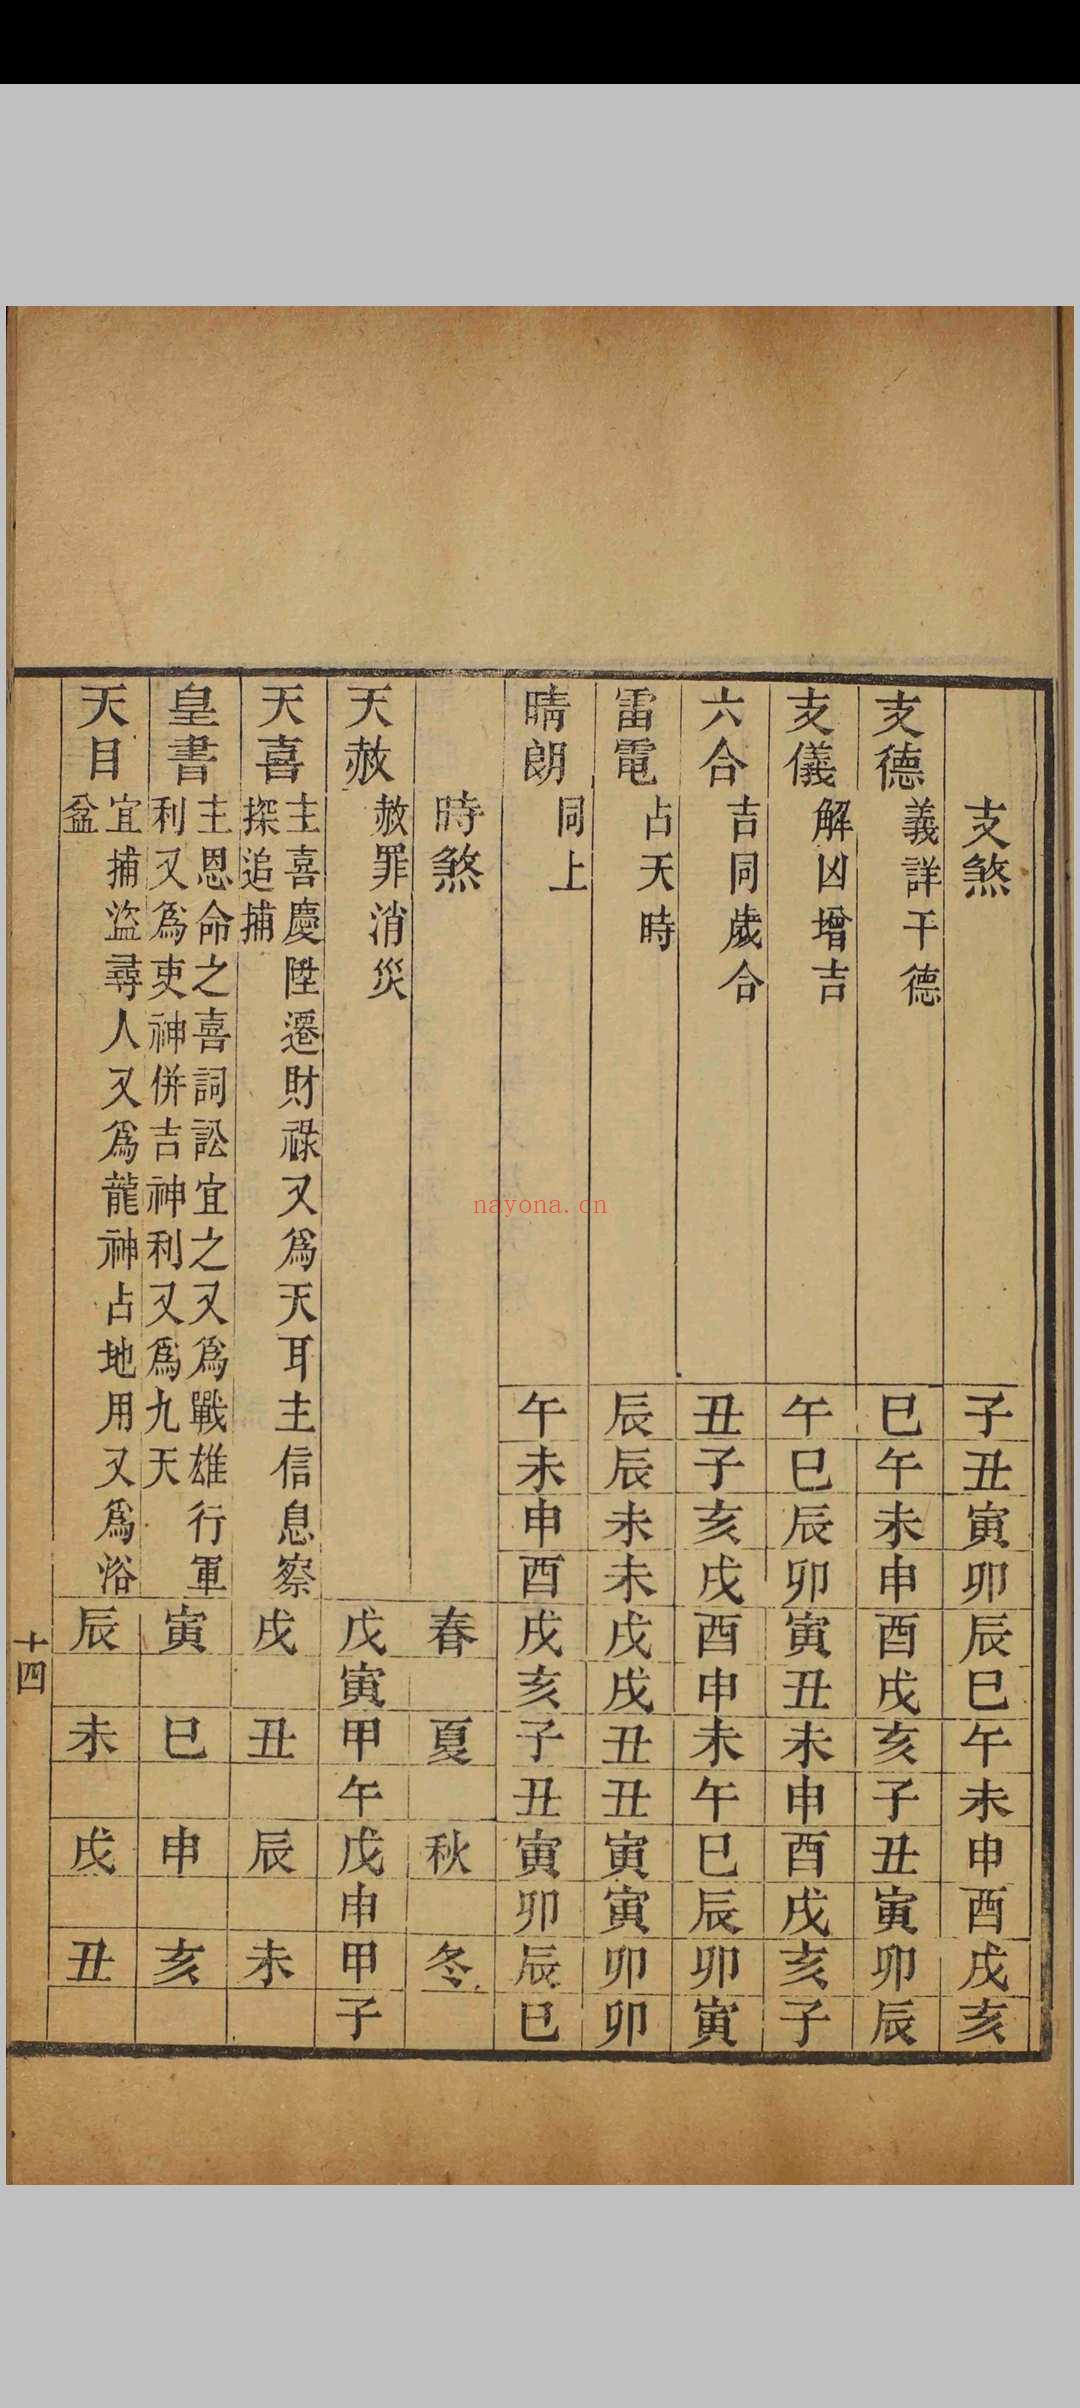 支煞 子 丑 寅 卯 辰 巳 午 未 申 酉 戌 亥
支德 義詳干德 巳 午 未 申 酉 戌 亥 子 丑 寅 卯 辰
支儀 解凶增吉 午 巳 辰 卯 寅 丑 未 申 酉 戌 亥 子
六合 吉同歲合 丑 子 亥 戌 酉 申 未 午 巳 辰 卯 寅
雷電 占天時 辰 辰 未 未 戌 戌 丑 丑 寅 寅 卯 卯
晴朗 同上 午 未 申 酉 戌 亥 子 丑 寅 卯 辰 巳
時煞 春 夏 秋 冬
天赦 赦罪消災 戊寅 甲午 戊申 甲子
天喜 主喜慶陞遷財祿又爲天耳主信息察
探追捕 戌 丑 辰 未
皇書 主恩命之喜詞訟宜之又爲戰雄行軍
利又爲吏神併吉神利又爲九天 寅 巳 申 亥
天目 宜捕盜尋人又爲龍神占地用又爲浴
盆 辰 未 戌 丑
十四
nayona.cn